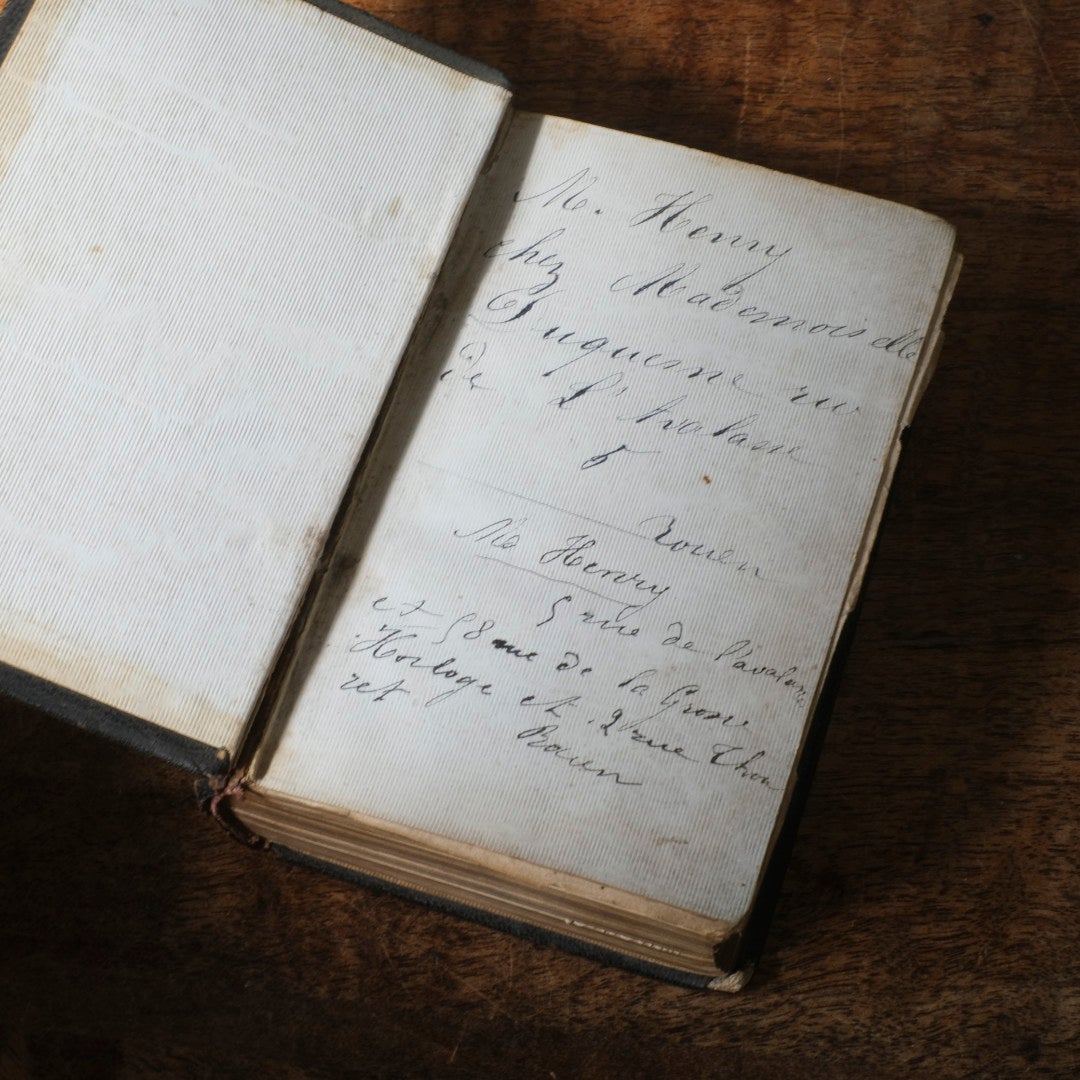 M. Henry
chez Mademoiselle
Duquesne rue
de L'Avalasse
5
Rouen
M Henry
5 rue de l'avalasse
et 58 rue de la Grosse
Horloge et 2 rue Thou
ret
Rouen